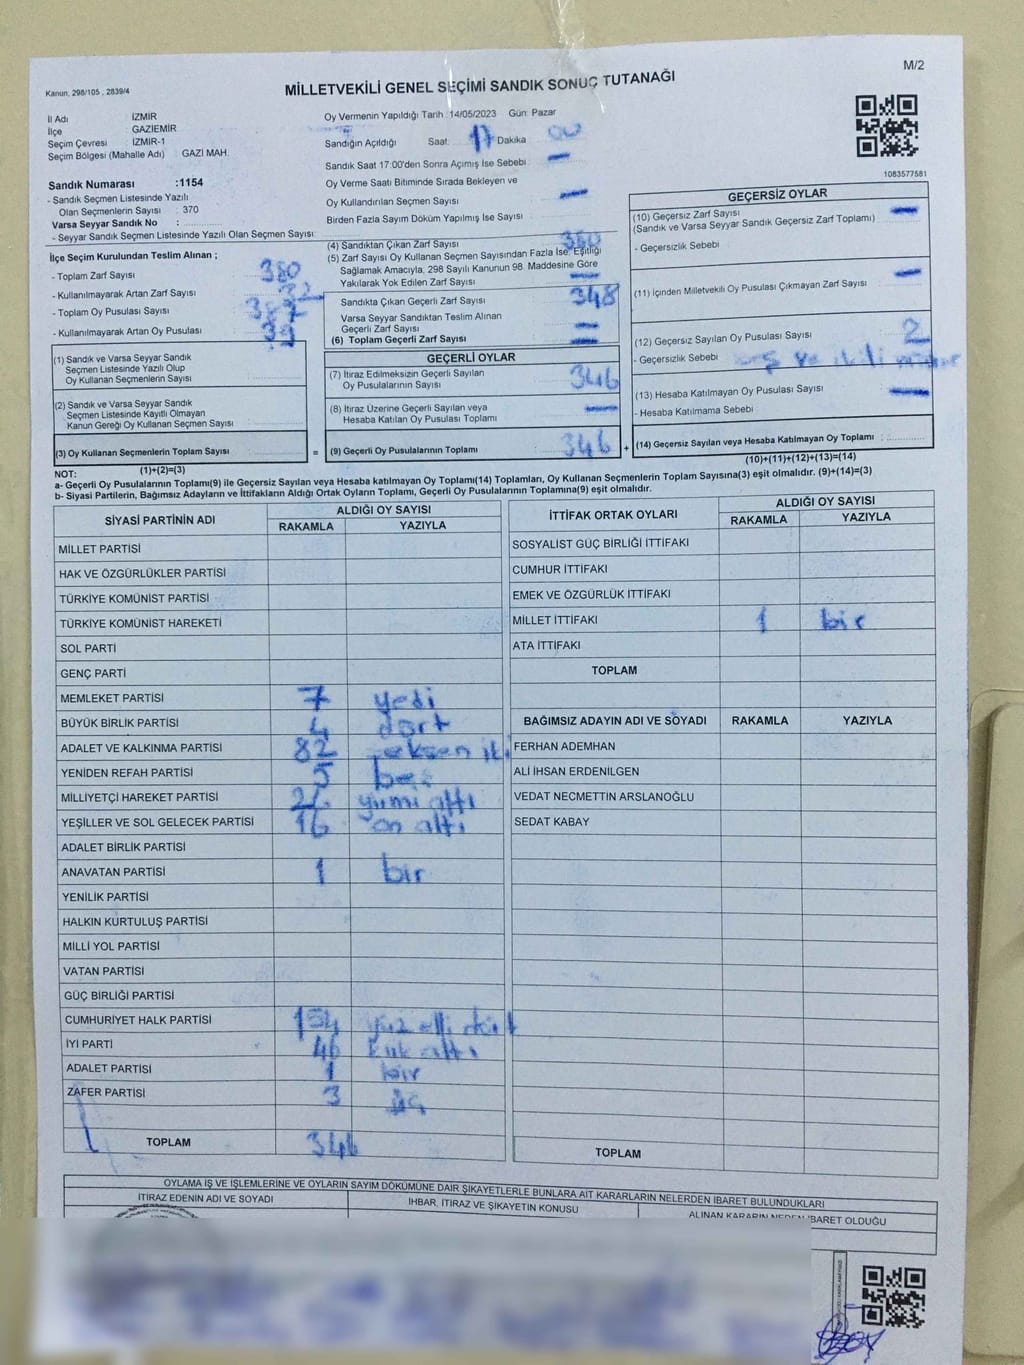 M/2
Kanun, 298/105 , 2839/4
MİLLETVEKİLİ GENEL SEÇİMİ SANDIK SONUÇ TUTANAĞI
İl Adı İZMİR
İlçe GAZİEMİR
Seçim Çevresi : İZMİR-1
Seçim Bölgesi (Mahalle Adı) GAZİ MAH.
Sandık Numarası :1154
- Sandık Seçmen Listesinde Yazılı
Olan Seçmenlerin Sayısı : 370
Varsa Seyyar Sandık No :
- Seyyar Sandık Seçmen Listesinde Yazılı Olan Seçmen Sayısı:
Oy Vermenin Yapıldığı Tarih :14/05/2023 Gün: Pazar
Sandığın Açıldığı Saat: 17 Dakika 00
Sandık Saat 17:00'den Sonra Açımış İse Sebebi : —
Oy Verme Saati Bitiminde Sırada Bekleyen ve
Oy Kullandırılan Seçmen Sayısı : —
Birden Fazla Sayım Döküm Yapılmış İse Sayısı :
1083577581
İlçe Seçim Kurulundan Teslim Alınan ;
- Toplam Zarf Sayısı : 380
- Kullanılmayarak Artan Zarf Sayısı : 32
- Toplam Oy Pusulası Sayısı : 387
- Kullanılmayarak Artan Oy Pusulası : 39
(1) Sandık ve Varsa Seyyar Sandık
Seçmen Listesinde Yazılı Olup
Oy Kullanan Seçmenlerin Sayısı
(2) Sandık ve Varsa Seyyar Sandık
Seçmen Listesinde Kayıtlı Olmayan
Kanun Gereği Oy Kullanan Seçmen Sayısı
(3) Oy Kullanan Seçmenlerin Toplam Sayısı :
(1)+(2)=(3)
(4) Sandıktan Çıkan Zarf Sayısı
(5) Zarf Sayısı Oy Kullanan Seçmen Sayısından Fazla İse, Eşitliği
Sağlamak Amacıyla, 298 Sayılı Kanunun 98. Maddesine Göre
Yakılarak Yok Edilen Zarf Sayısı : —
Sandıkta Çıkan Geçerli Zarf Sayısı : 348
Varsa Seyyar Sandıktan Teslim Alınan
Geçerli Zarf Sayısı : —
(6) Toplam Geçerli Zarf Sayısı : —
GEÇERLİ OYLAR
(7) İtiraz Edilmeksizin Geçerli Sayılan
Oy Pusulalarının Sayısı : 346
(8) İtiraz Üzerine Geçerli Sayılan veya
Hesaba Katılan Oy Pusulası Toplamı : —
= (9) Geçerli Oy Pusulalarının Toplamı : 346 +
GEÇERSİZ OYLAR
(10) Geçersiz Zarf Sayısı : —
(Sandık ve Varsa Seyyar Sandık Geçersiz Zarf Toplamı)
- Geçersizlik Sebebi
(11) İçinden Milletvekili Oy Pusulası Çıkmayan Zarf Sayısı : —
(12) Geçersiz Sayılan Oy Pusulası Sayısı : 2
- Geçersizlik Sebebi :
(13) Hesaba Katılmayan Oy Pusulası Sayısı : —
- Hesaba Katılmama Sebebi
(14) Geçersiz Sayılan veya Hesaba Katılmayan Oy Toplamı :
(10)+(11)+(12)+(13)=(14)
NOT:
a- Geçerli Oy Pusulalarının Toplamı(9) ile Geçersiz Sayılan veya Hesaba katılmayan Oy Toplamı(14) Toplamları, Oy Kullanan Seçmenlerin Toplam Sayısına(3) eşit olmalıdır. (9)+(14)=(3)
b- Siyasi Partilerin, Bağımsız Adayların ve İttifakların Aldığı Ortak Oyların Toplamı, Geçerli Oy Pusulalarının Toplamına(9) eşit olmalıdır.
SİYASİ PARTİNİN ADI ALDIĞI OY SAYISI
RAKAMLA YAZIYLA
MİLLET PARTİSİ
HAK VE ÖZGÜRLÜKLER PARTİSİ
TÜRKİYE KOMÜNİST PARTİSİ
TÜRKİYE KOMÜNİST HAREKETİ
SOL PARTİ
GENÇ PARTİ
MEMLEKET PARTİSİ 7 yedi
BÜYÜK BİRLİK PARTİSİ 4 dört
ADALET VE KALKINMA PARTİSİ 82 seksen iki
YENİDEN REFAH PARTİSİ 5 beş
MİLLİYETÇİ HAREKET PARTİSİ 26 yirmi altı
YEŞİLLER VE SOL GELECEK PARTİSİ 16 on altı
ADALET BİRLİK PARTİSİ
ANAVATAN PARTİSİ 1 bir
YENİLİK PARTİSİ
HALKIN KURTULUŞ PARTİSİ
MİLLİ YOL PARTİSİ
VATAN PARTİSİ
GÜÇ BİRLİĞİ PARTİSİ
CUMHURİYET HALK PARTİSİ 154 yüz elli dört
İYİ PARTİ 46 kırk altı
ADALET PARTİSİ 1 bir
ZAFER PARTİSİ 3 üç
TOPLAM 346
İTTİFAK ORTAK OYLARI ALDIĞI OY SAYISI
RAKAMLA YAZIYLA
SOSYALİST GÜÇ BİRLİĞİ İTTİFAKI
CUMHUR İTTİFAKI
EMEK VE ÖZGÜRLÜK İTTİFAKI
MİLLET İTTİFAKI 1 bir
ATA İTTİFAKI
TOPLAM
BAĞIMSIZ ADAYIN ADI VE SOYADI RAKAMLA YAZIYLA
FERHAN ADEMHAN
ALİ İHSAN ERDENİLGEN
VEDAT NECMETTİN ARSLANOĞLU
SEDAT KABAY
TOPLAM
OYLAMA İŞ VE İŞLEMLERİNE VE OYLARIN SAYIM DÖKÜMÜNE DAİR ŞİKAYETLERLE BUNLARA AİT KARARLARIN NELERDEN İBARET BULUNDUKLARI
İTİRAZ EDENİN ADI VE SOYADI İHBAR, İTİRAZ VE ŞİKAYETİN KONUSU ALINAN KARARIN NEDEN İBARET OLDUĞU